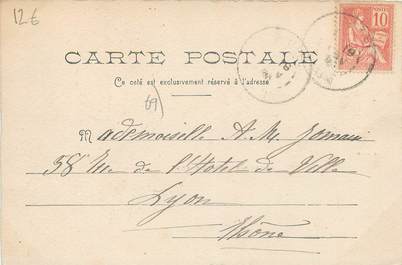 12€
POSTES
10
CARTE POSTALE
Ce côté est exclusivement réservé à l'adresse
69
Mademoiselle A. M. Jomain
58 Rue de l'Hotel de Ville
Lyon
Rhône